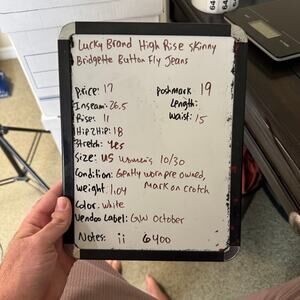 Lucky Brand High Rise Skinny
Bridgette Button Fly Jeans
Price: 17 Postmark 19
Inseam: 26.5 Length:
Rise: 11 Waist: 15
Hip2Hip: 18
Stretch: Yes
Size: US Women's 10/30
Condition: Gently worn pre owned,
Mark on crotch
Weight: 1.04
Color: White
Vendoo Label: GW October
Notes: ii 6400
64